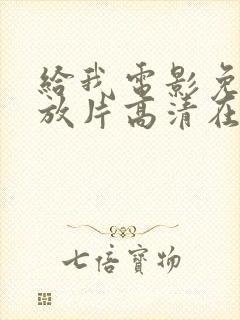 给我电影免
放片高清在
七倍寶物